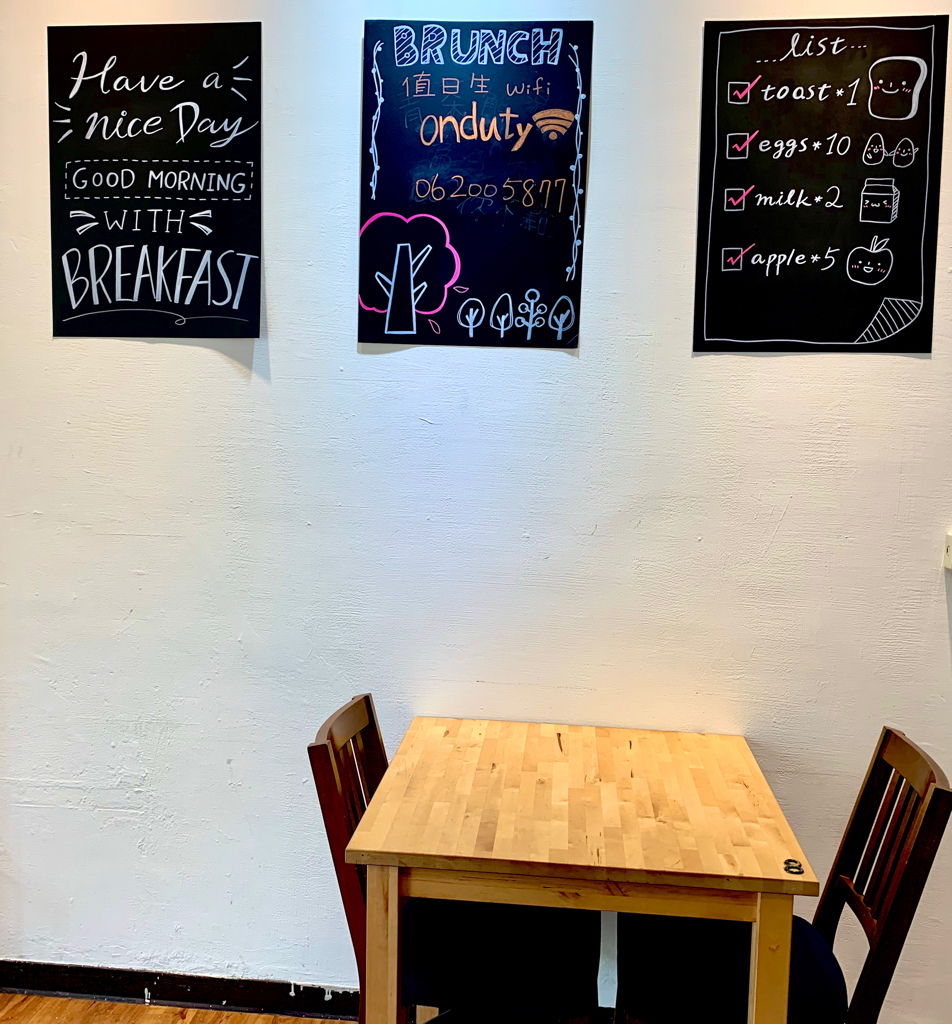 Have a
nice Day
GOOD MORNING
WITH
BREAKFAST
BRUNCH
值日生 wifi
onduty
062005877
...list...
toast*1
eggs*10
milk*2
apple*5